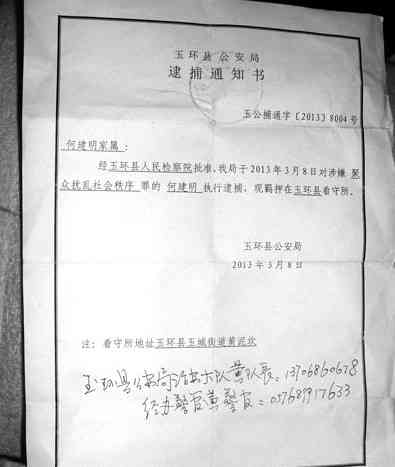 玉环县公安局
逮捕通知书
玉公捕通字〔2013〕8004号
何建明家属：
经玉环县人民检察院批准，我局于2013年3月8日对涉嫌 聚
众扰乱社会秩序 罪的 何建明 执行逮捕，现羁押在玉环县看守所。
玉环县公安局
2013年3月8日
注：看守所地址玉环县玉城街道黄泥坎
玉环县公安局治安大队黄队长：13706860678
经办警官黄警官：057687917633